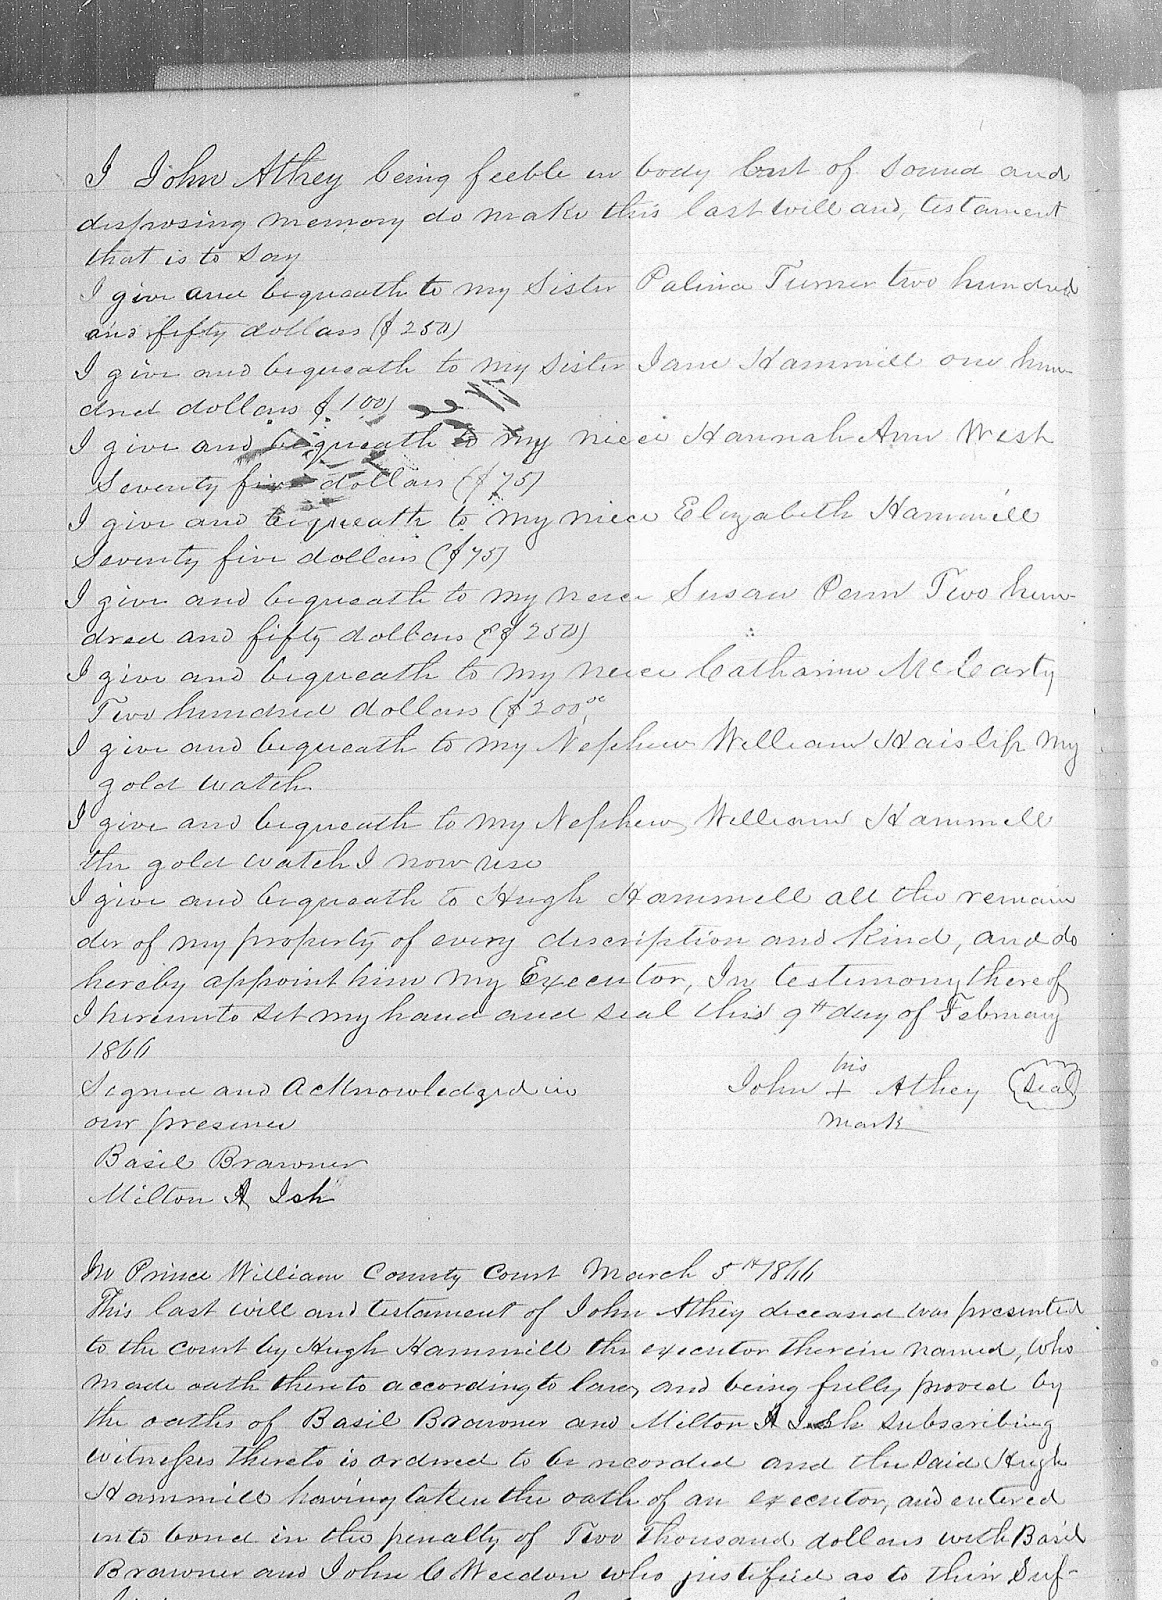 I John Athey being feeble in body but of sound and
disposing memory do make this last will and testament
that is to say
I give and bequeath to my Sister Palina Turner two hundred
and fifty dollars ($250)
I give and bequeath to my Sister Jane Hammill one hun-
dred dollars $100)
I give and bequeath to my niece Hannah Ann West
Seventy five dollars ($75)
I give and bequeath to my niece Elizabeth Hammill
Seventy five dollars ($75)
I give and bequeath to my niece Susan Penn Two hun-
dred and fifty dollars ($250)
I give and bequeath to my niece Catharine McCarty
Two hundred dollars ($200.00
I give and bequeath to my Nephew William Haislip my
gold watch
I give and bequeath to my Nephew William Hammell
the gold watch I now use
I give and bequeath to Hugh Hammell all the remain
der of my property of every description and kind, and do
hereby appoint him my Executor, In testimony thereof
I hereunto set my hand and seal this 9th day of February
1866
Signed and acknowledged in
our presence
John his + mark Athey Seal
Basil Brawner
Milton A Ish
In Prince William County Court March 5th 1866
This last will and testament of John Athey deceased was presented
to the court by Hugh Hammill the executor therein named, who
made oath thereto according to law, and being fully proved by
the oaths of Basil Brawner and Milton A Ish subscribing
witnesses thereto is ordered to be recorded and the said Hugh
Hammill having taken the oath of an executor, and entered
into bond in the penalty of Two Thousand dollars with Basil
Brawner and John C Weedon who justified as to their Suf-